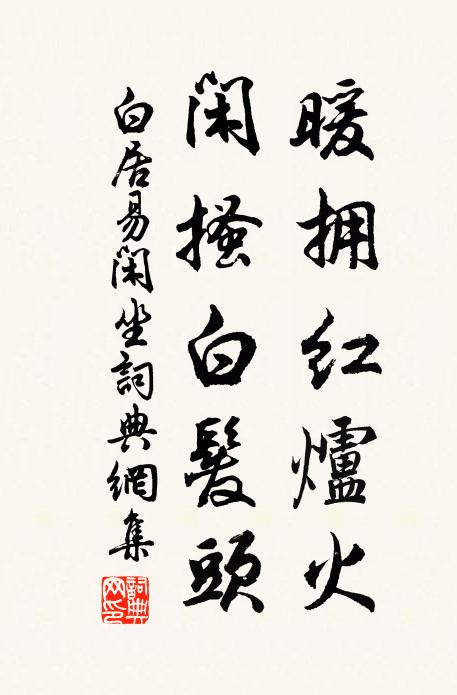 暖拥红爐火
闲搔白髮頭
白居易闲坐詞典網集
詞典网印